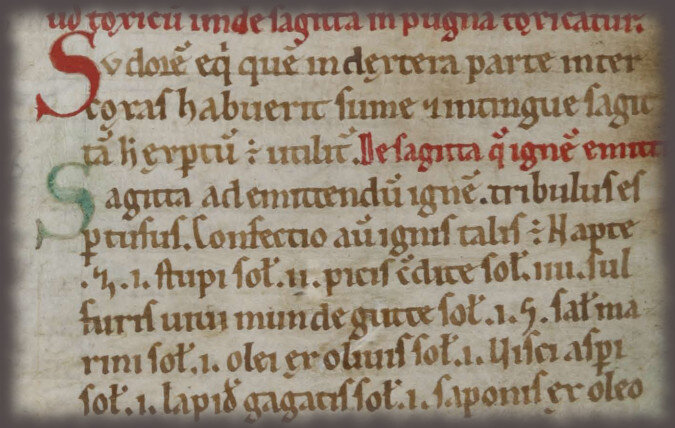 ud toxicū unde sagitta in pugna toxicatur.
Sudorē eq̇ quē in dextera parte inter
coxas habuerit sume ⁊ intingue sagit
tā h̄ exp̄tū ÷ utilit̄. De sagitta q̄ ignē emitt
Sagitta ad emittendū ignē. tribulus es
ptusus. Confectio aū ignis talis ÷ Napte
.i. stupi sol̄. ii. picis sol̄. iiii. sul
furis unū munde gutte sol̄. i. sal̄ ma
rini sol̄. i. olei ex oliuis sol̄. i. Uisci asp̄i
sol̄. i. lapid̄ gagatis sol̄. i. saponis ex oleo